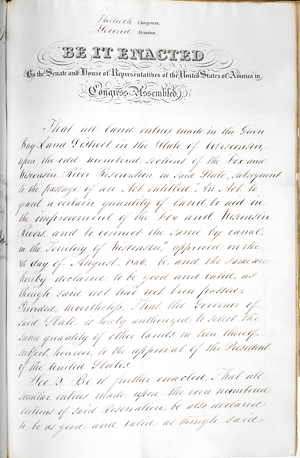 Thirtieth Congress.
Second Session,
BE IT ENACTED
By the Senate and House of Representatives of the United States of America in
Congress Assembled,
That all land entries made in the Green
Bay Land District in the State of Wisconsin
upon the odd numbered sections of the Fox and
Wisconsin River Reservation in said State, subsequent
to the passage of an Act entitled "An Act to
grant a certain quantity of land to aid in
the improvement of the Fox and Wisconsin
Rivers and to connect the same by canal
in the Territory of Wisconsin" approved on the
8th day of August, 1846, be and the same are
hereby declared to be good and valid, as
though said act had not been passed;
Provided, nevertheless, That the Governor of
said State is hereby authorized to select the
same quantity of other lands in lieu thereof,
subject, however, to the approval of the President
of the United States.
Sec. 2. Be it further enacted, That all
similar entries made upon the even numbered
sections of said Reservation, be also declared
to be as good and valid as though said